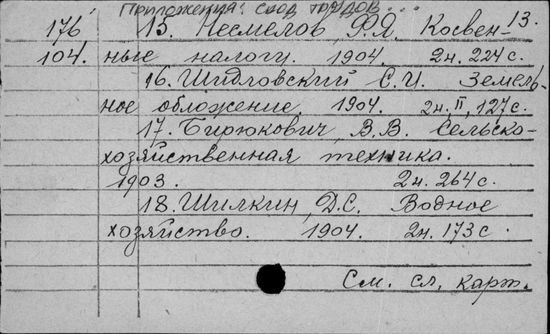 Приложения: свод трудов...
13.
176 15. Несмелов, Ф.Я. Косвен-
104. ные налоги. 1904. 2н. 224 с.
16. Шидловский С.И. Земель-
ное обложение, 1904. 2н. II, 127 с.
17. Бирюкович, В.В. Сельско-
хозяйственная техника.
1903. 2н. 264 с.
18. Шилкин, Д.С. Водное
хозяйство. 1904. 2н. 173 с.
См. сл. карт.